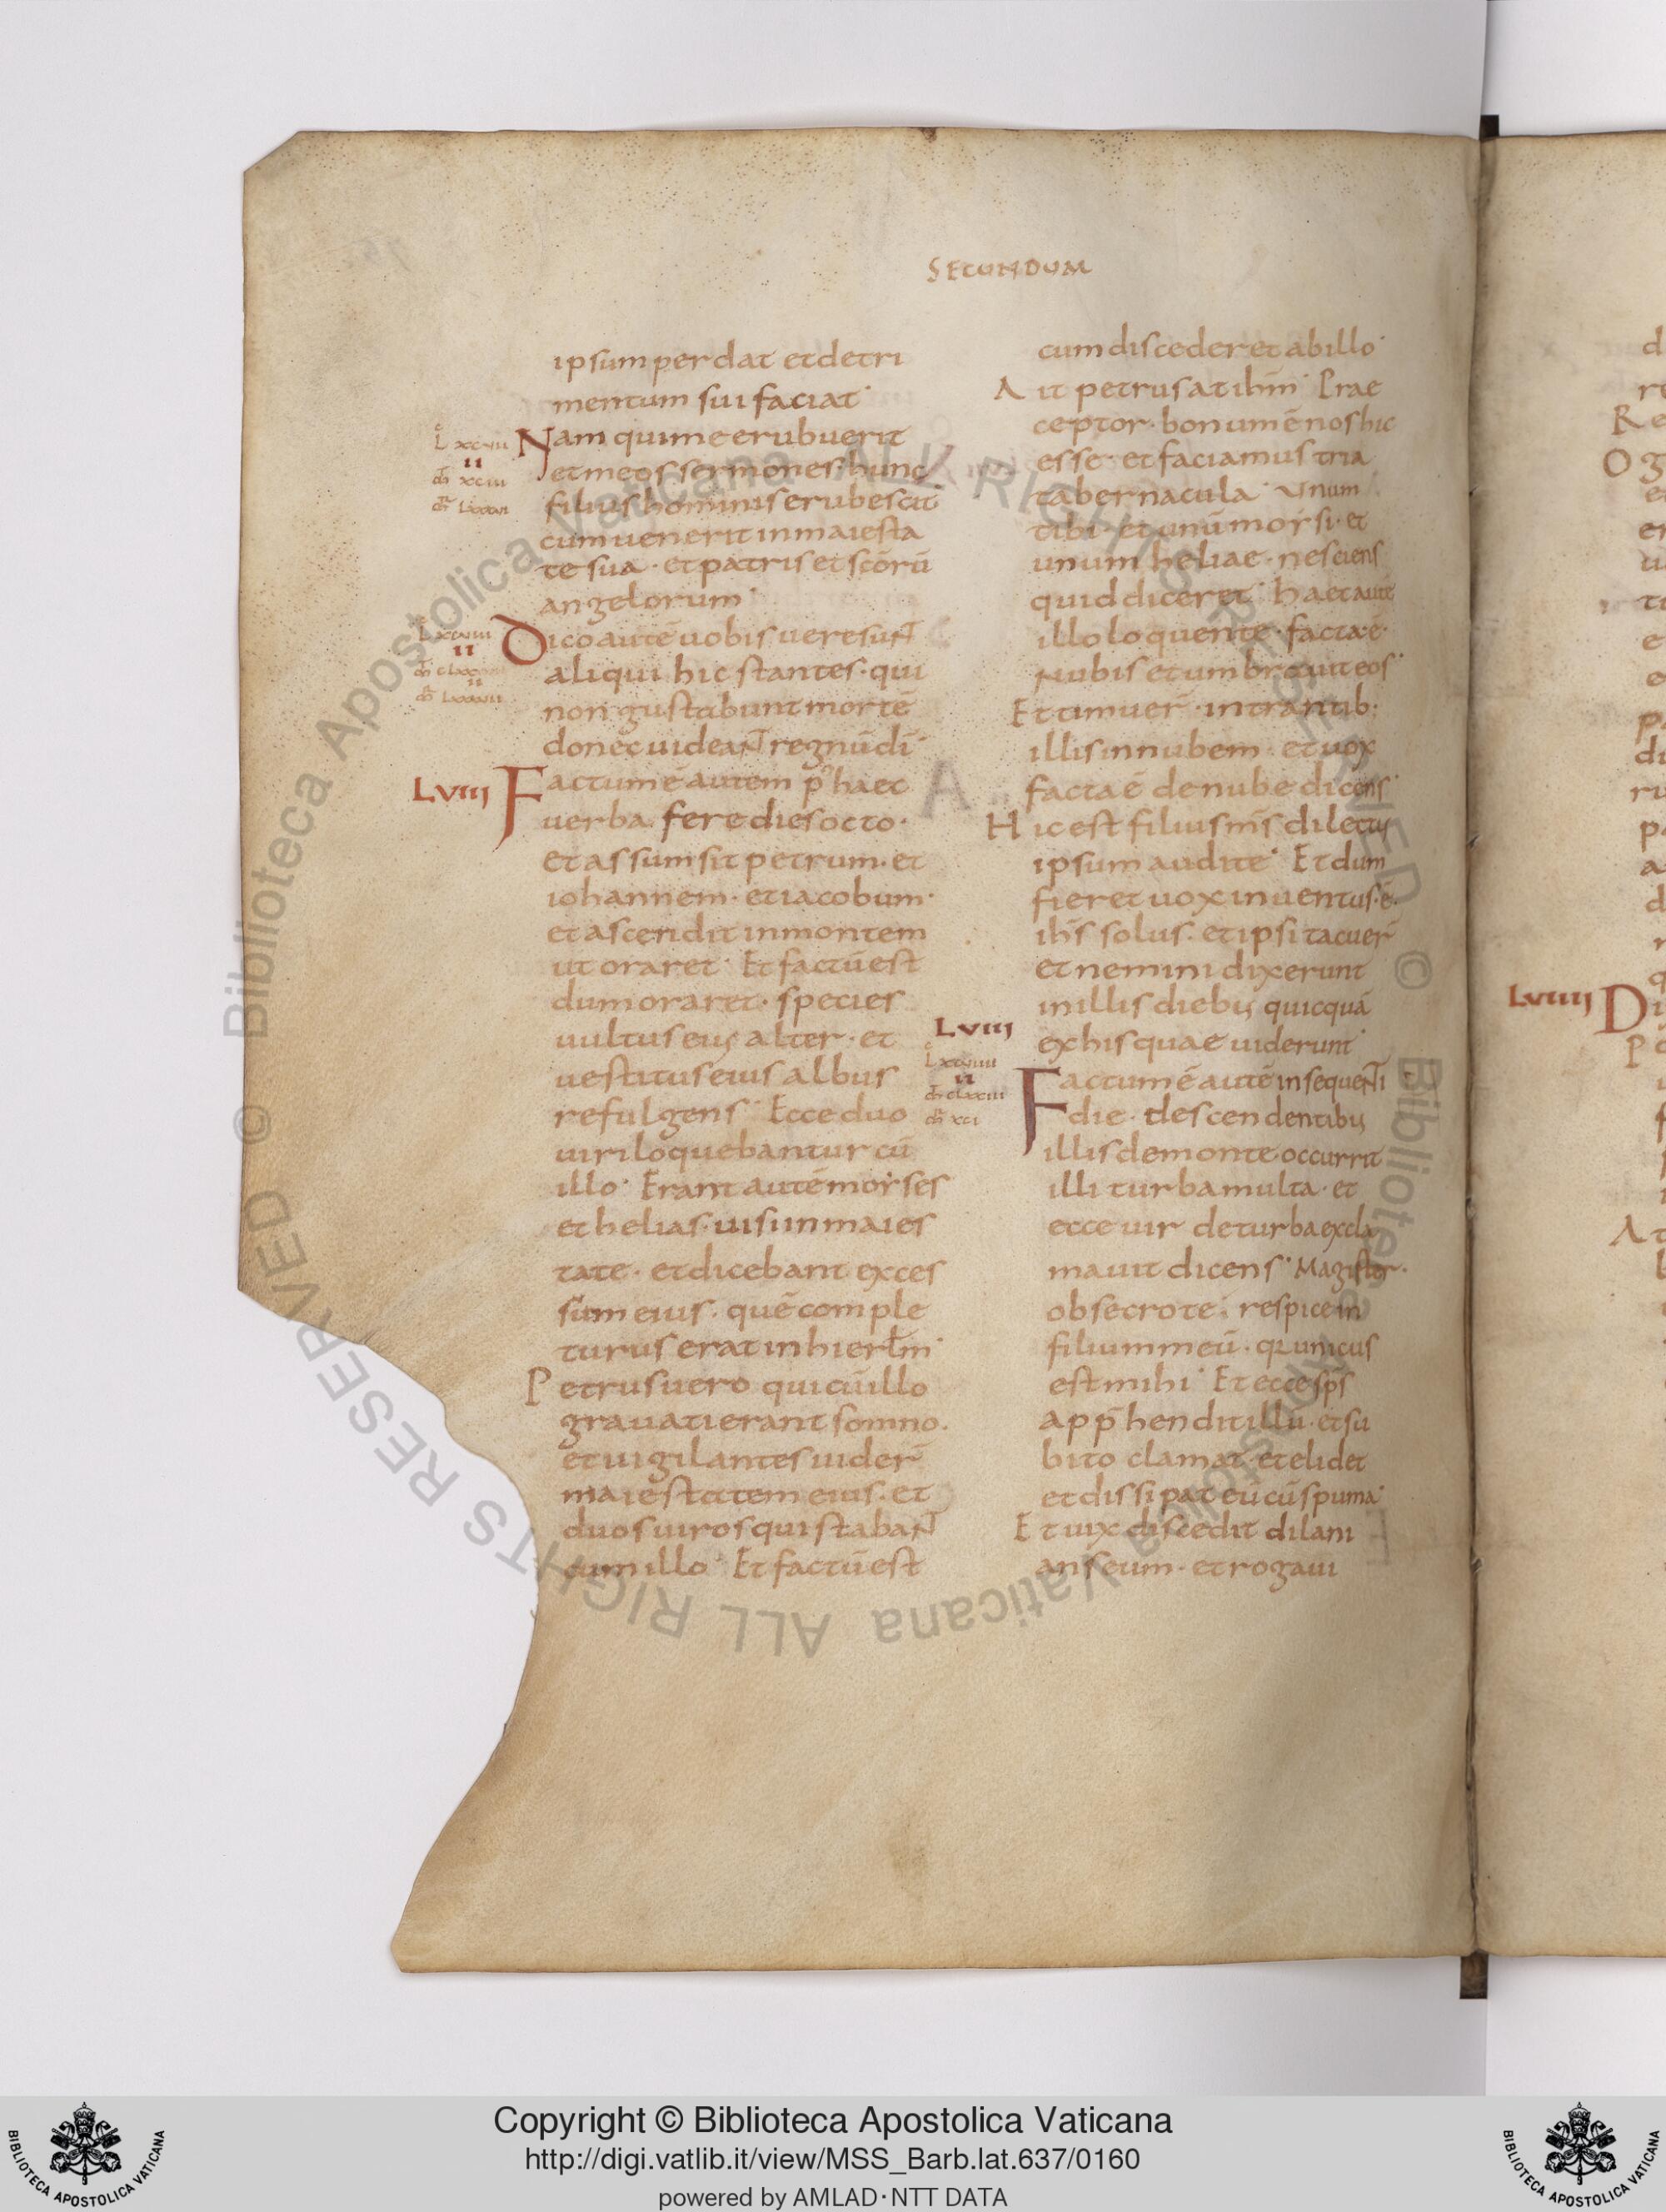 SECUNDUM
ipsum perdat et detri
mentum sui faciat·
Nam qui me erubuerit
et meos sermones· hunc
filius hominis erubescit
cum uenerit in maiesta
te sua· et patris et scōrū
angelorum·
Dico autē uobis uere sunt
aliqui hic stantes· qui
non gustabunt mortē
donec uideant regnū dī·
LVIII
Factum ē autem p' haec
uerba fere dies octo·
et assumsit petrum· et
iohannem· et iacobum·
et ascendit in montem
ut oraret· Et factū est
dum oraret· species
uultus eius alter· et
uestitus eius albus
refulgens· Ecce duo
uiri loquebantur cū
illo· Erant autē moyses
et helias· uisi in maies
tate· et dicebant exces
sum eius· quē comple
turus erat in hierłm·
Petrus uero qui cū illo
grauati erant somno·
et uigilantes uider̄
maiestatem eius· et
duos uiros qui stabant
cum illo· Et factū est
cum discederet ab illo·
Ait petrus at ihm̄· Prae
ceptor· bonum ē nos hic
esse· et faciamus tria
tabernacula· Unum
tibi· et unū moysi· et
unum heliae· nesciens
quid diceret· haec autē
illo loquente· facta·ē·
Nubis et umbrauit eos·
Et timuer̄· intrantib:
illis in nubem· et uox
facta ē de nube dicens·
Hic est filius ms̄ dilectus
ipsum audite· Et dum
fieret uox inuentus·ē·
ihs̄ solus· et ipsi tacuer̄
et nemini dixerunt
in illis diebus quicquā
ex his quae uiderunt·
LVIII
L xcviiii
II
Factum ē autē in sequenti
die· descendentibus
illis de monte occurrit
illi turba multa· et
ecce uir de turba excla
mauit dicens· Magister·
obsecro te· respice in
filium meū· qr unicus
est mihi· Et ecce sps̄
app̄hendit illū· et su
bito clamat et elidet
et dissipat eū cū spuma·
Et uix discedit dilani
ans eum· et rogaui
LVIIII
Copyright © Biblioteca Apostolica Vaticana
http://digi.vatlib.it/view/MSS_Barb.lat.637/0160
powered by AMLAD·NTT DATA
BIBLIOTECA APOSTOLICA VATICANA
BIBLIOTECA APOSTOLICA VATICANA
© Biblioteca Apostolica Vaticana ALL RIGHTS RESERVED
© Biblioteca Apostolica Vaticana ALL RIGHTS RESERVED